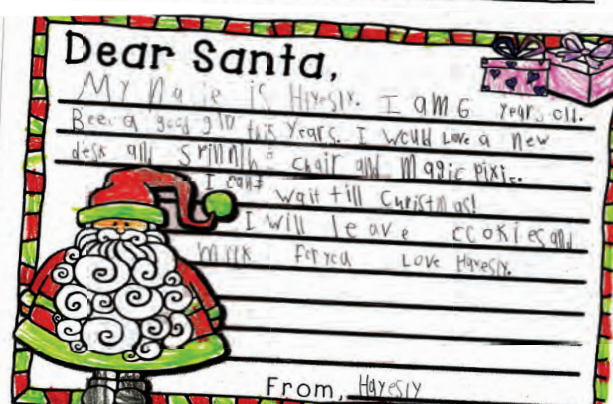 Dear Santa,
My Name is Hayesly. I am 6 years old.
Been a good girl this years. I would Love a new
desk and Spinning chair and Magic pixie.
I can't wait till Christmas!
I will leave cookies and
milk for you Love Hayesly.
From, Hayesly